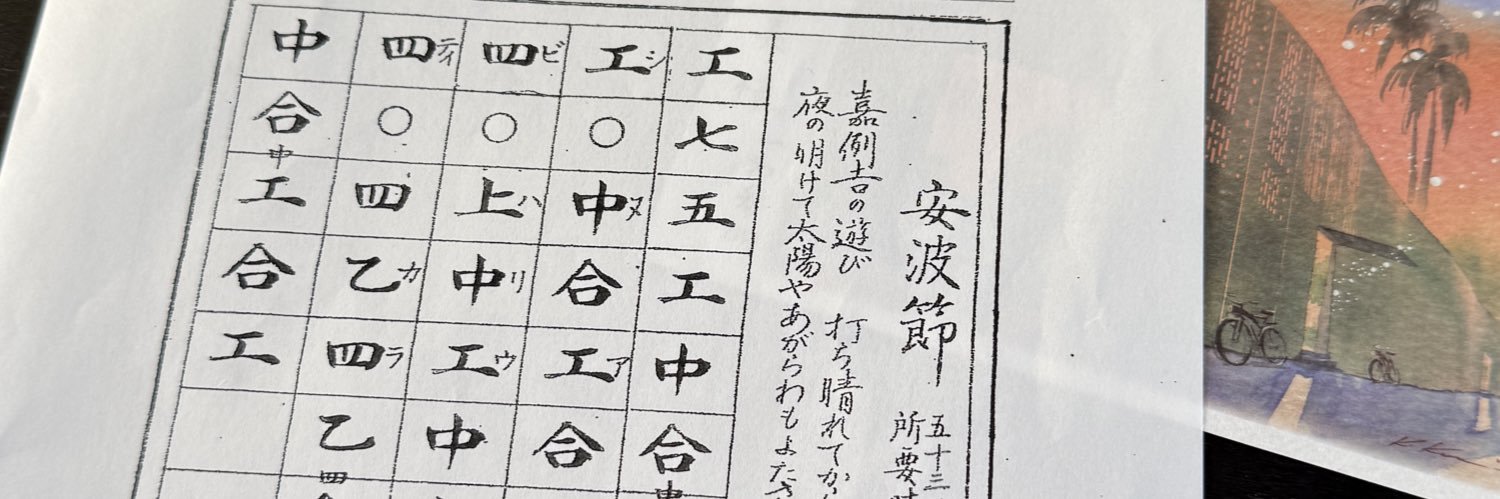 安波節
五十三
所要
嘉例吉の遊び 打ち晴れてか
夜の明けて太陽やあがらわもよたさ
工七五工中合
工シ○中ヌ合工ア合
四ビ○上ハ中リ工ウ中
四ティ○四乙カ四ラ乙四
中合中工合工